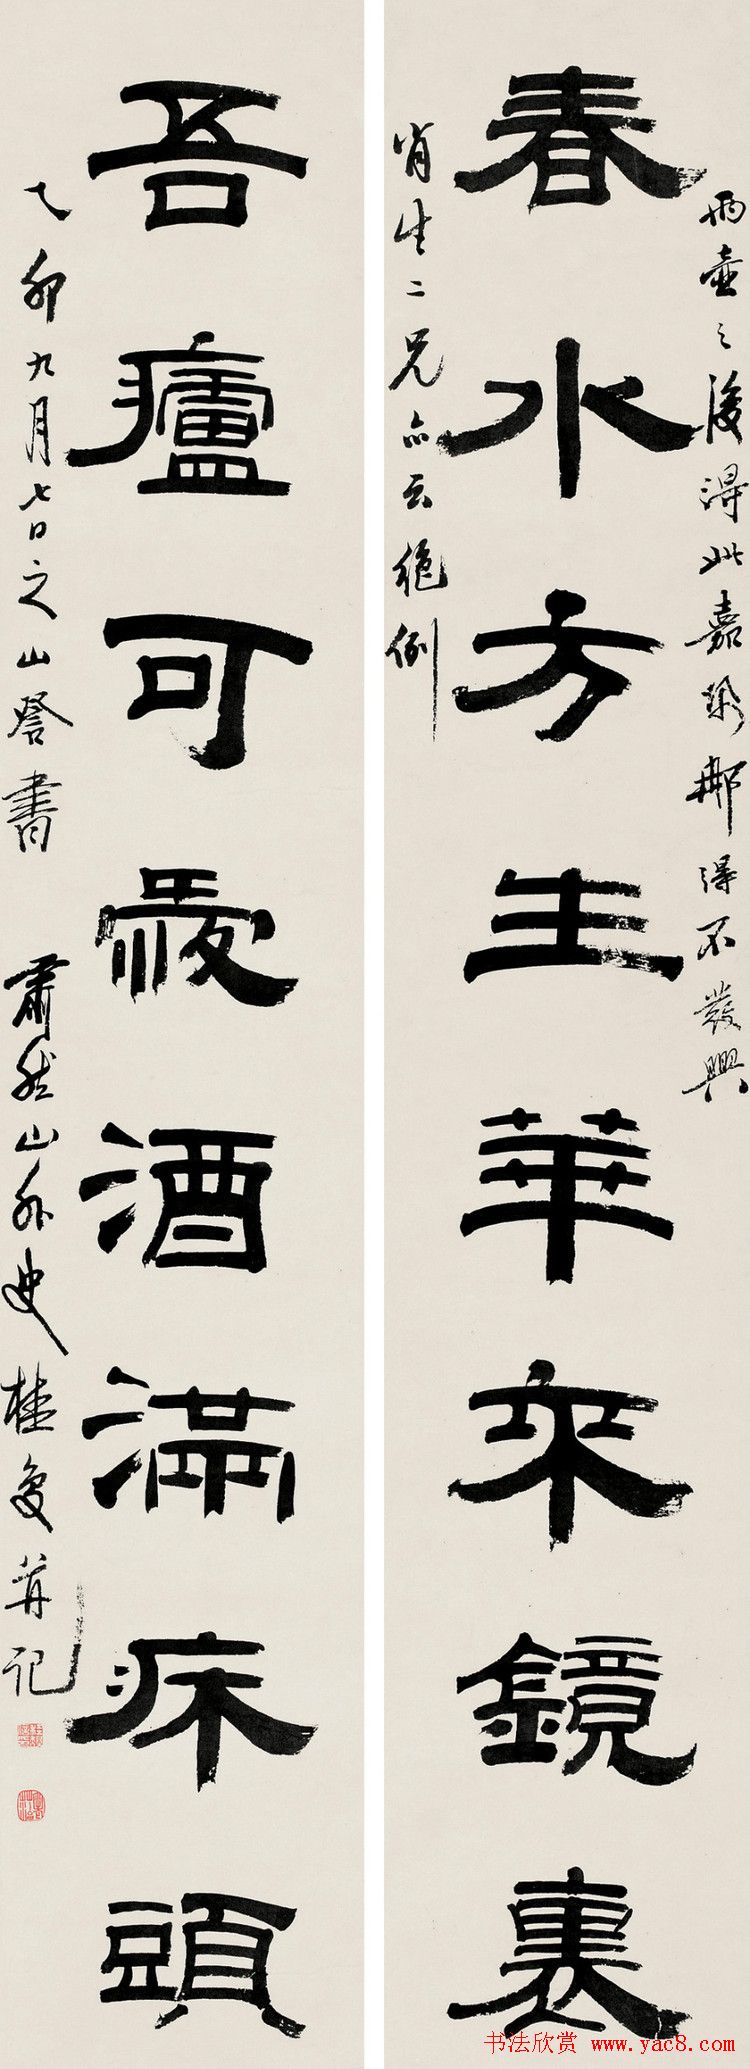 兩壺之後得此嘉聯那得不發興
春水方生華來鏡裏
肖生二兄亦云絕倒
吾廬可愛酒滿床頭
乙卯九月七日之山書 肅然山外史桂复并記
书法欣赏 www.yac8.com